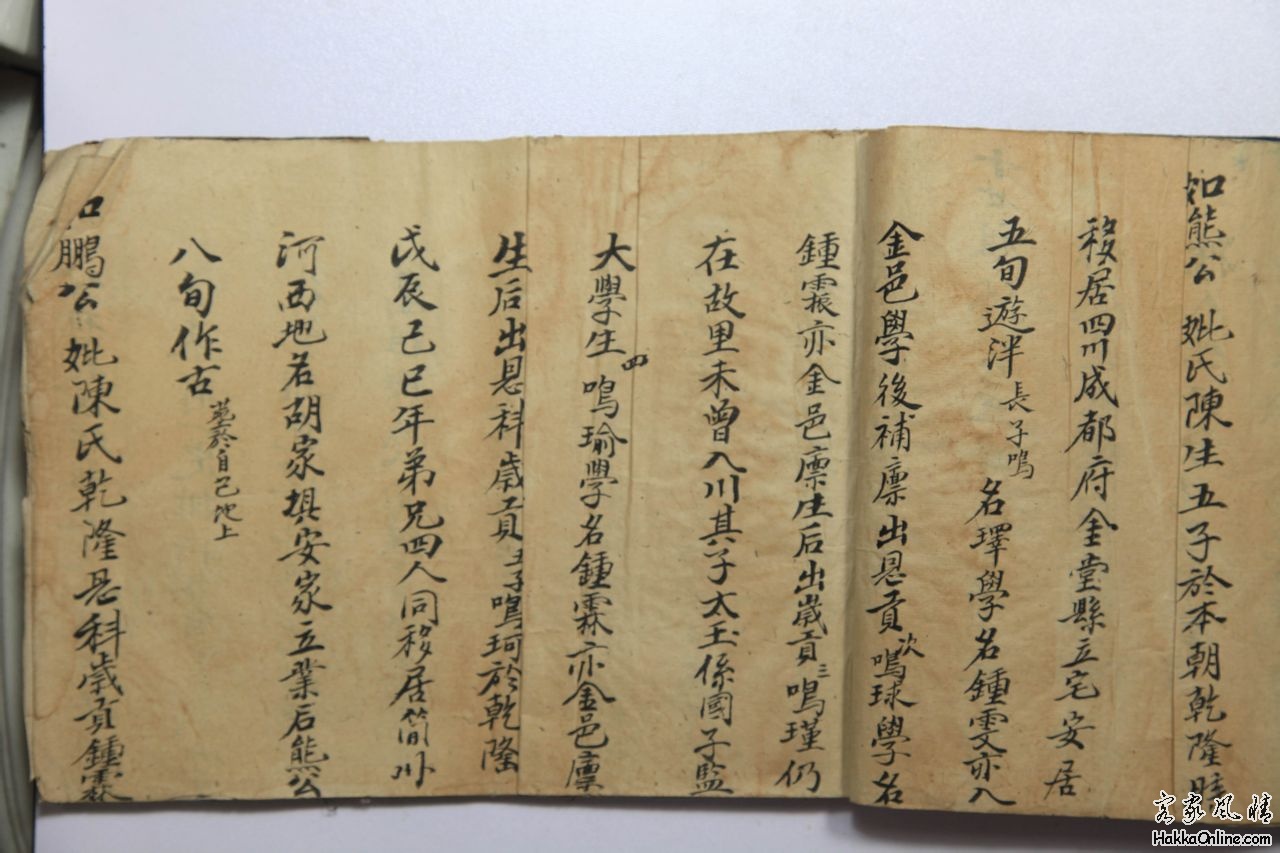 如熊公 妣氏陳生五子於本朝乾隆時
移居四川成都府金堂縣立宅安居
五旬遊泮長子鳴 名㻬學名鍾雯亦入
金邑學後補廪出恩貢次鳴球學名
鍾霡亦金邑廪生后出歲貢三鳴瑾仍
在故里未曾入川其子太玉係國子監
大學生四鳴瑜學名鍾霖亦金邑廪
生后出恩科歲貢五子鳴珂於乾隆
戊辰己巳年弟兄四人同移居簡州
河西地名胡家埧安家立業后熊公
八旬作古塟於自己地上
如鵬公妣陳氏乾隆恩科歲貢鍾霖
客家風情
HakkaOnline.com